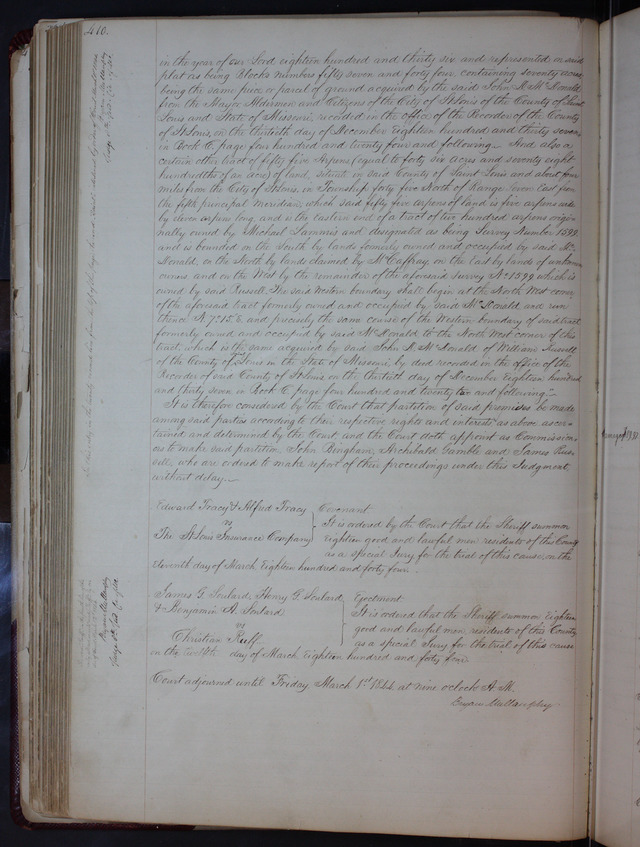 410.
in the year of our Lord eighteen hundred and thirty six and represented on said
plat as being Blocks numbers fifty seven and forty four, containing seventy acres
being the same piece or parcel of ground acquired by the said John McDonald
from the Mayor Aldermen and Citizens of the City of St Louis of the County of Saint
Louis and State of Missouri, recorded in the office of the Recorder of the County
of St Louis, on the thirtieth day of December Eighteen hundred and thirty seven
in Book C. page four hundred and twenty four and following. And also a
certain other tract of fifty five Arpens (equal to forty six acres and seventy eight
hundredths of an acre) of land, situate in said County of Saint Louis and about four
miles from the City of St Louis, in Township forty five North of Range seven East from
the fifth principal meridian, which said fifty five arpens of land is five arpens wide
by eleven arpens long, and is the eastern end of a tract of two hundred arpens origin-
nally owned by Michael Lamaris and designated as being Survey Number 1599
and is bounded on the South by lands formerly owned and occupied by said Mc
Donald, on the North by lands claimed by McCaffray, on the East by lands of unknown
owners and on the West by the remainder of the aforesaid Survey No 1599 which is
owned by said Russell. The said western boundary shall begin at the North West corner
of the aforesaid tract formerly owned and occupied by said McDonald and run
thence N. 7° 15' E. and precisely the same course of the Western boundary of said tract
formerly owned and occupied by said McDonald to the North West corner of this
tract, which is the same acquired by said John McDonald of William Russell
of the County of St Louis in the State of Missouri, by deed recorded in the office of the
Recorder of said County of St Louis on the thirtieth day of December Eighteen hundred
and thirty seven in Book C. page four hundred and twenty two and following.
It is therefore considered by the Court that partition of said premises be made
among said parties according to their respective rights and interests as above ascer-
tained and determined by the Court, and the Court doth appoint as Commission-
ers to make said partition John Bingham, Archibald Gamble and James Rus-
sell, who are ordered to make report of their proceedings under this Judgment
without delay.
Edward Tracy & Alfred Tracy Covenant
vs It is ordered by the Court that the Sheriff summon
The St Louis Insurance Company Eighteen good and lawful men residents of this County
as a special Jury for the trial of this cause, on the
Eleventh day of March Eighteen hundred and forty four.
James G. Soulard, Henry G. Soulard Ejectment
& Benjamin A. Soulard It is ordered that the Sheriff summon Eighteen
vs good and lawful men, residents of this County
Christian Ruff as a special Jury for the trial of this cause
on the twelfth day of March Eighteen hundred and forty four
Court adjourned until Friday March 1st 1844 at nine o'clock A. M.
Bryan Mullanphy